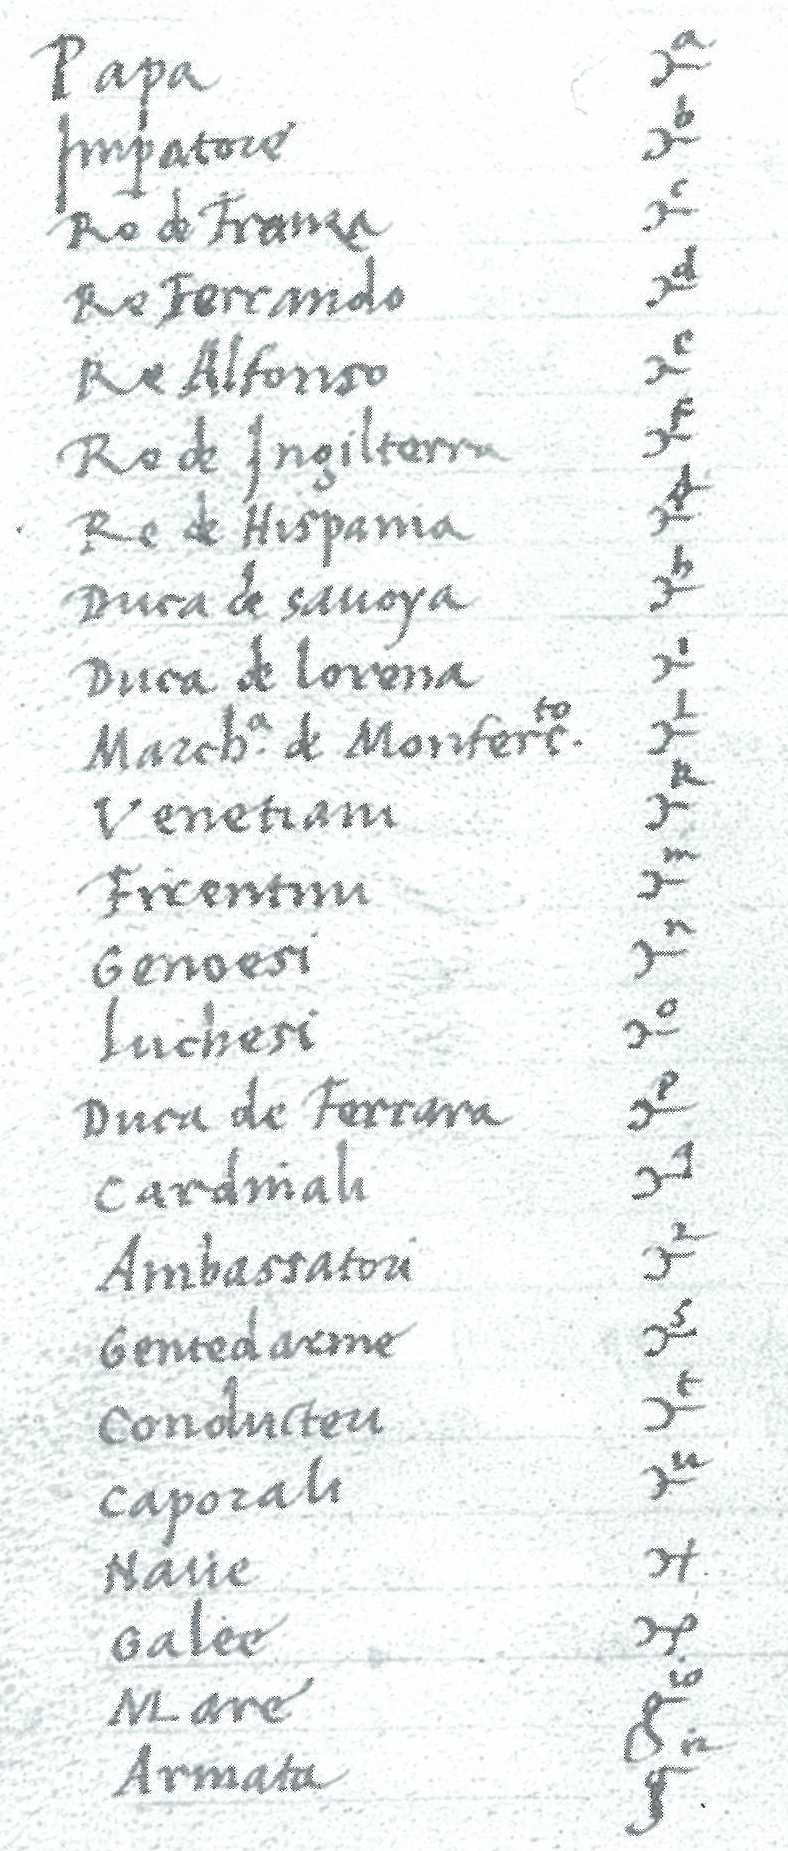 Papa a
Impatore b
Re de Franza c
Re Ferrando d
Re Alfonso e
Re de Ingilterra f
Re de Hispania
Duca de sauoya h
Duca de lorena i
Marchª. de Monferrto. l
Venetiani k
Fiorentini m
Genoesi n
luchesi o
Duca de Ferrara p
Cardinali q
Ambassatori r
Gentedarme s
Conducteri t
Caporali u
Naue
Galee
Mare
Armata